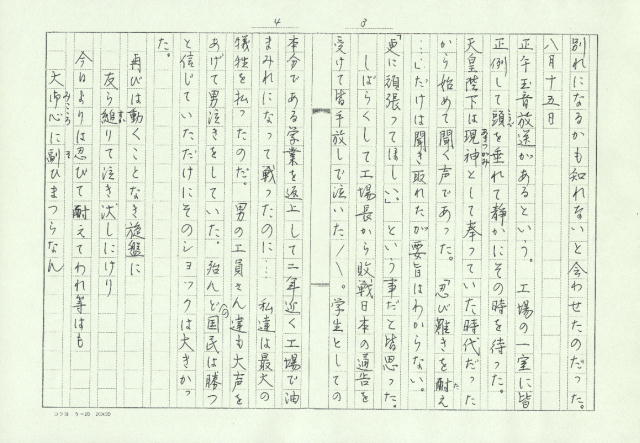 別れになるかも知れないと会わせたのだった。
八月十五日
正午玉音放送があるという。工場の一室に皆
正例して頭を垂れて静かにその時を待った。
天皇陛下は現神として奉っていた時代だった
から始めて聞く声であった。「忍び難きを耐え
…」だけは聞き取れたが要旨はわからない。
「更に頑張ってほしい。」という事だと皆思った。
しばらくして工場長から敗戦日本の通告を
受けて皆手放しで泣いた〱。学生としての
本分である学業を返上して二年近く工場で油
まみれになって戦ったのに…私達は最大の
犠牲を払ったのだ。男の工員さん達も大声を
あげて男泣きをしていた。殆んどの国民は勝つ
と信じていただけにそのショックは大きかっ
た。
再びは動くことなき旋盤に
友ら縋りて泣き伏しにけり
今日よりは忍びて耐えてわれ等はも
大御心に副ひまつらなん
3
4
コクヨ ケ-20 20×20